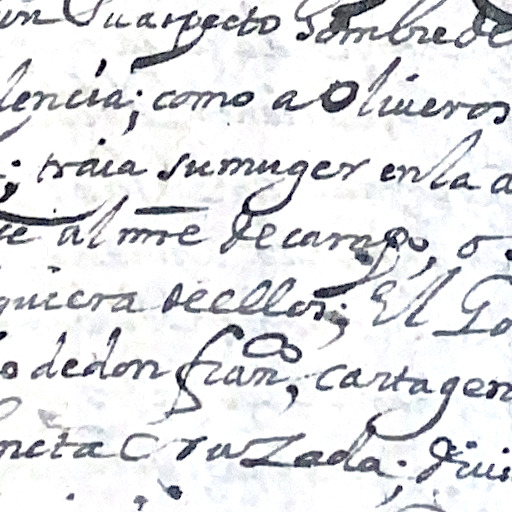 un Su aspecto hombre de
lencia; como a Oliueros
; traia su muger en la a
al mre de campo, o
quiera de ellos; El Go
o de don franco, cartagen
ncta Cruzada; diui